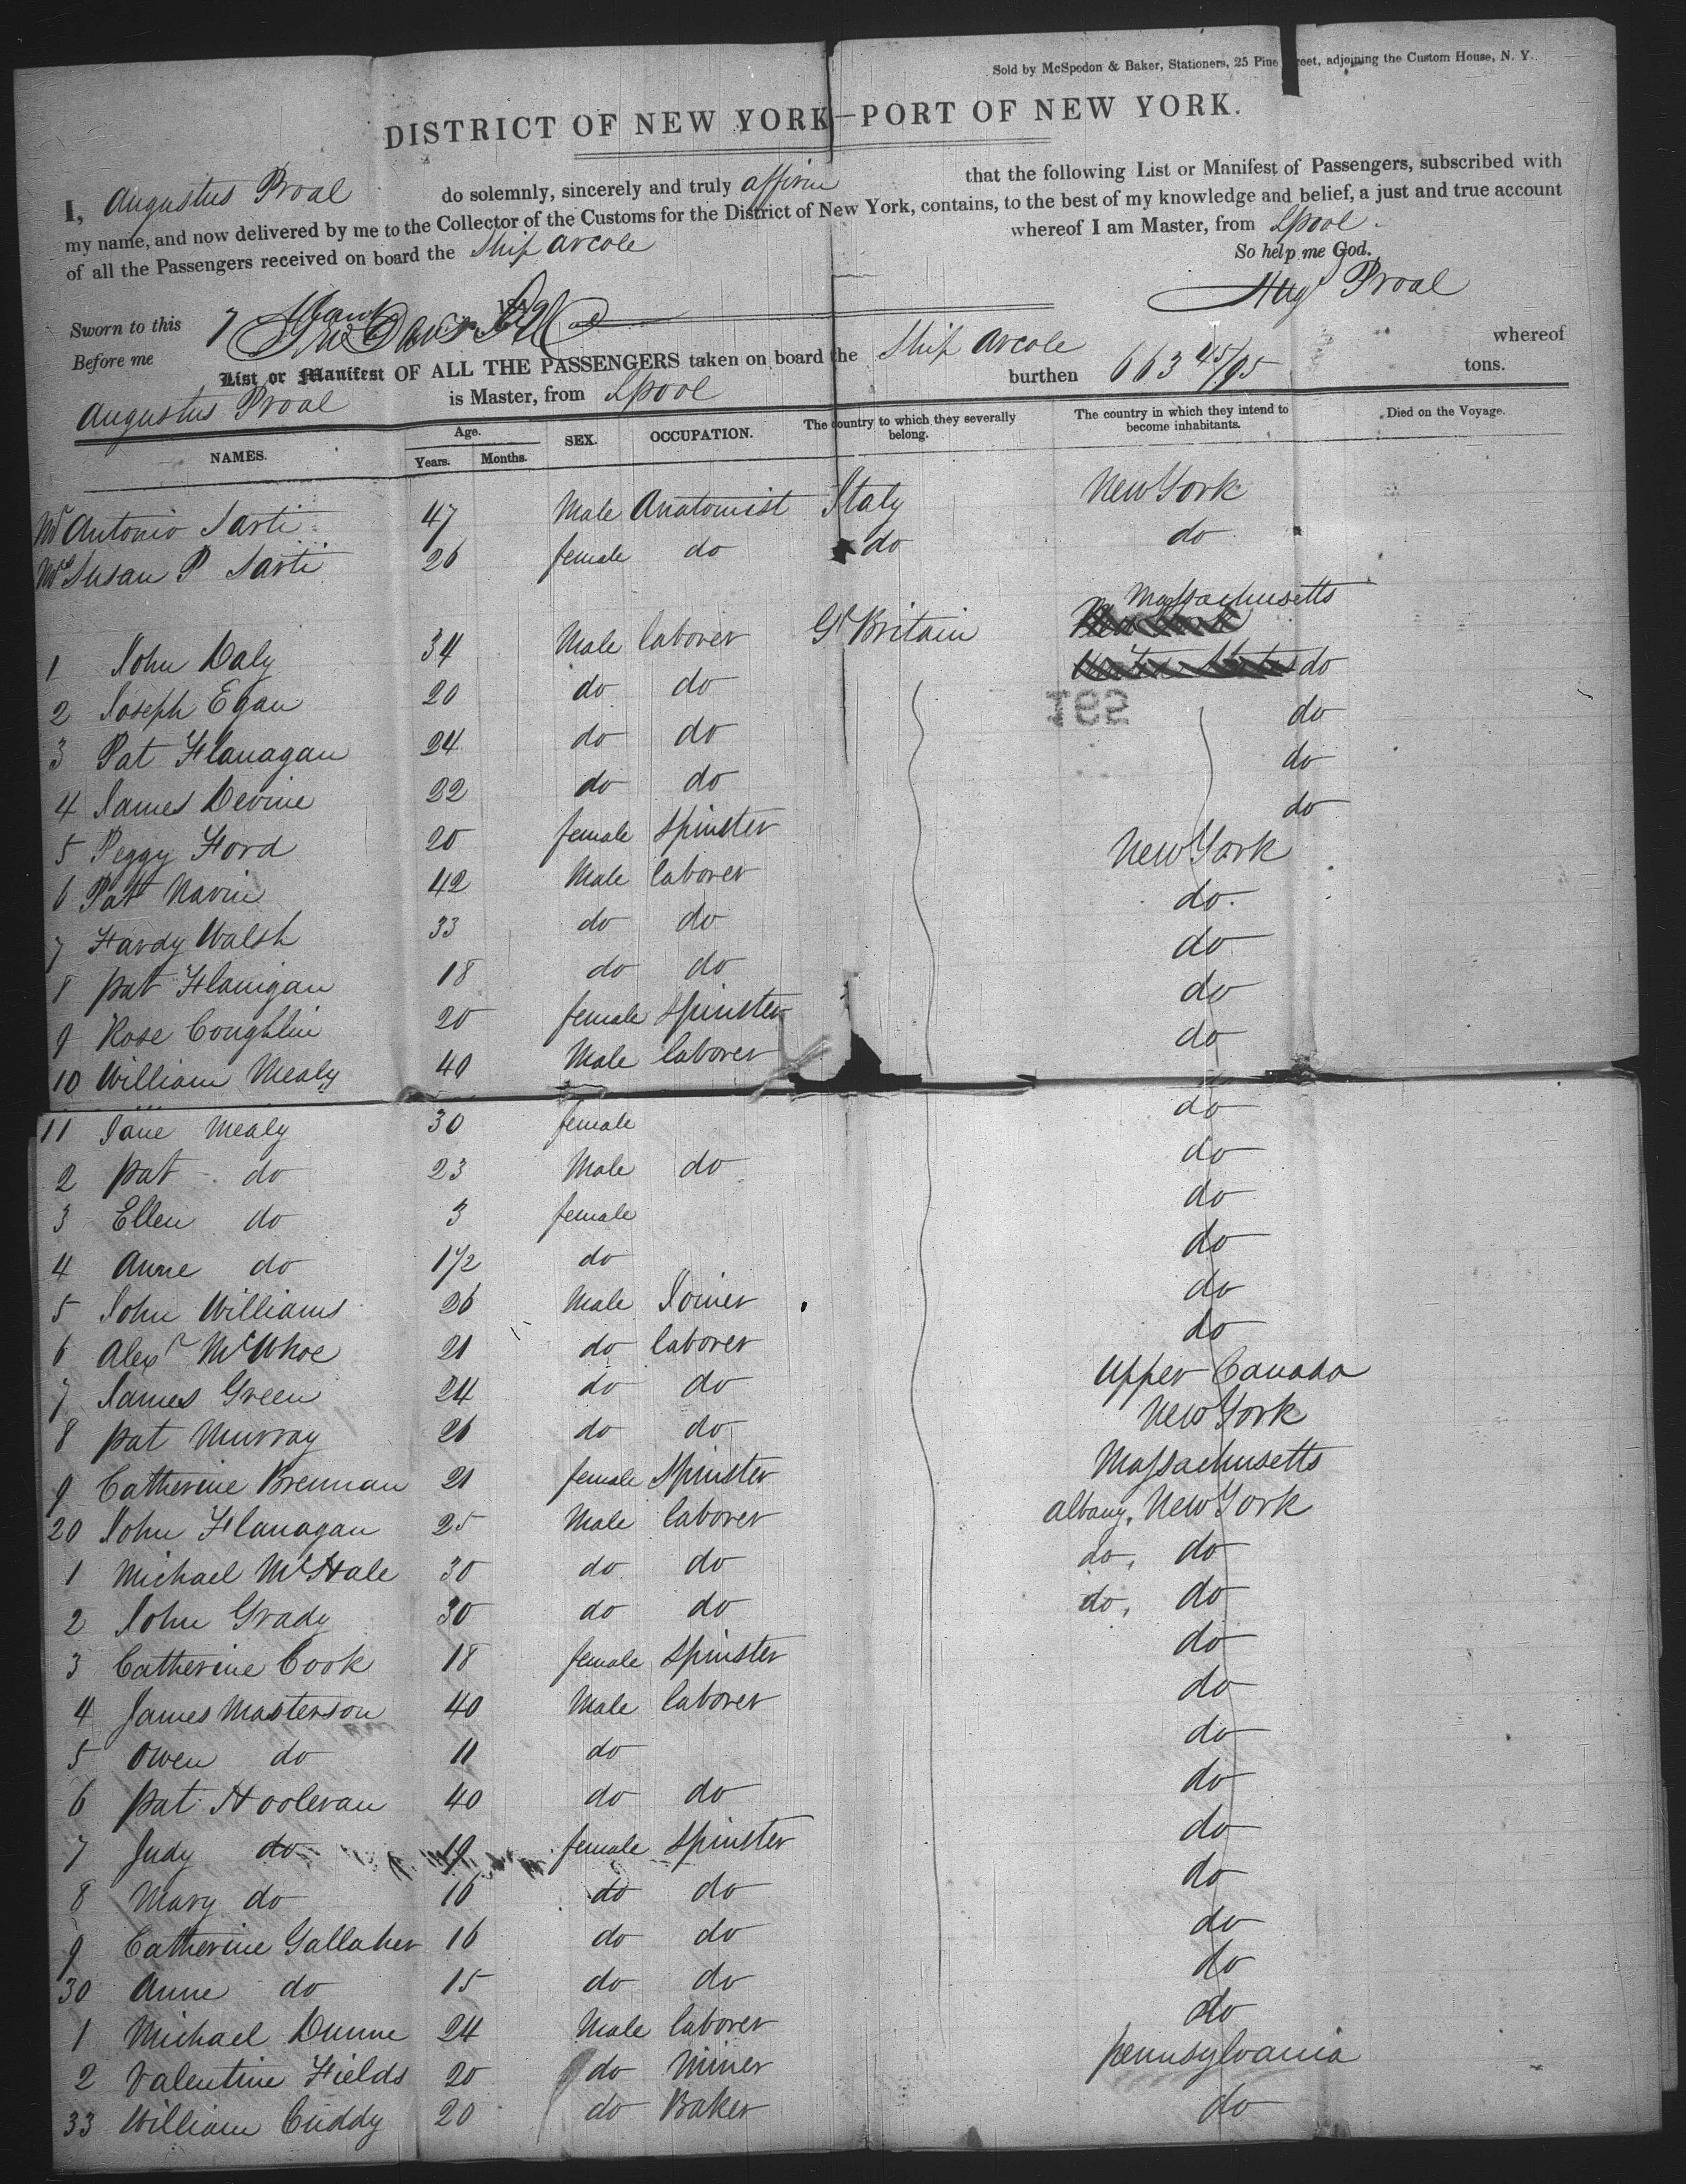 Sold by McSpedon & Baker, Stationers, 25 Pine Street, adjoining the Custom House, N. Y.
DISTRICT OF NEW YORK—PORT OF NEW YORK.
I, Augustus Proal do solemnly, sincerely and truly affirm that the following List or Manifest of Passengers, subscribed with
my name, and now delivered by me to the Collector of the Customs for the District of New York, contains, to the best of my knowledge and belief, a just and true account
of all the Passengers received on board the Ship Arcole whereof I am Master, from Lpool.
So help me God.
Augs Proal
Sworn to this 7
Before me
List or Manifest OF ALL THE PASSENGERS taken on board the Ship Arcole whereof
Augustus Proal is Master, from Lpool burthen 663 45/95 tons.
NAMES. Age. Years. Months. SEX. OCCUPATION. The country to which they severally belong. The country in which they intend to become inhabitants. Died on the Voyage.
Mr Antonio Sarti 47 Male Anatomist Italy New York
Mrs Susan P Sarti 26 female do do do
1 John Daly 34 Male laborer Gt Britain Massachusetts
2 Joseph Egan 20 do do do
3 Pat Flanagan 24 do do do
4 James Devine 22 do do do
5 Peggy Ford 20 female Spinster do
6 Pat Navin 42 Male laborer New York
7 Hardy Walsh 33 do do do
8 Pat Flanigan 18 do do do
9 Rose Coughlin 20 female Spinster do
10 William Mealy 40 Male laborer do
11 Jane Mealy 30 female do
2 Pat do 23 Male do do
3 Ellen do 3 female do
4 Anne do 1 1/2 do do
5 John Williams 26 Male Joiner do
6 Alexr McWhoe 21 do laborer do
7 James Green 24 do do Upper Canada
8 Pat Murray 26 do do New York
9 Catherine Brennan 21 female Spinster Massachusetts
20 John Flanagan 25 Male laborer Albany, New York
1 Michael McHale 30 do do do, do
2 John Grady 30 do do do, do
3 Catherine Cook 18 female Spinster do
4 James Masterson 40 Male laborer do
5 Owen do 11 do do
6 Pat Hooleran 40 do do do
7 Judy do 19 female Spinster do
8 Mary do 16 do do do
9 Catherine Gallaher 16 do do do
30 Anne do 15 do do do
1 Michael Dunne 24 Male laborer do
2 Valentine Fields 20 do Miner Pennsylvania
33 William Cuddy 20 do Baker do